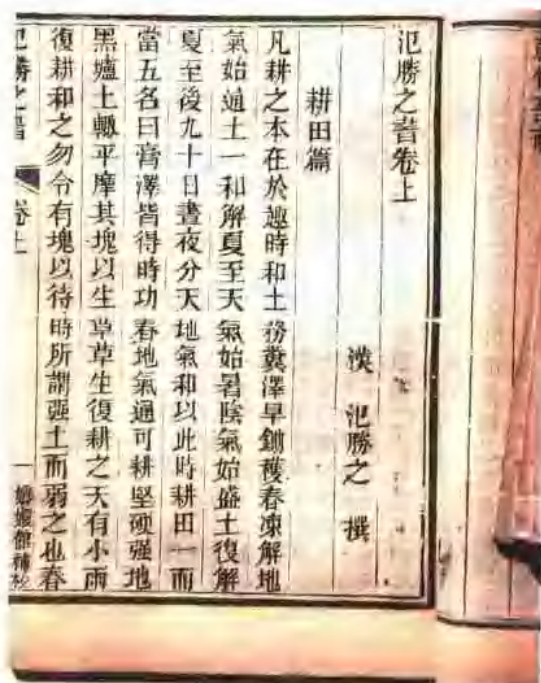 氾勝之書卷上
漢 氾勝之 撰
耕田篇
凡耕之本在於趣時和土務糞澤早鋤穫春凍解地
氣始通土一和解夏至天氣始暑陰氣始盛土復解
夏至後九十日晝夜分天地氣和以此時耕田一而
當五名曰膏澤皆得時功春地氣通可耕堅硬强地
黑壚土輒平摩其塊以生草草生復耕之天有小雨
復耕和之勿令有塊以待時所謂强土而弱之也春
氾勝之書 卷上 一 嫏嬛館補校